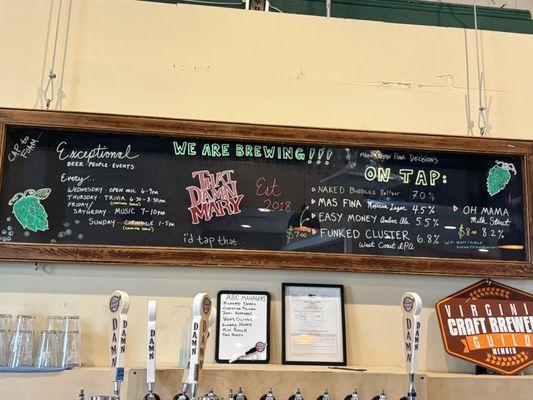 CAP to FOAM
Exceptional
BEER · PEOPLE · EVENTS
Every...
WEDNESDAY · OPEN MIC 6-9PM
THURSDAY · TRIVIA 6:30-8:30PM
FRIDAY
SATURDAY · MUSIC 7-10PM
SUNDAY 1-5PM
WE ARE BREWING!!!
THAT DAMN MARY
Est
2018
i'd tap that...
ON TAP:
NAKED Bubbles Seltzer 7.0%
MAS FINA Mexican Lager 4.5%
EASY MONEY Amber Ale 5.5%
$7.00
FUNKED CLUSTER 6.8%
West Coast IPA
OH MAMA
Milk Stout
$8.00 8.2%
ABC MANAGERS
DAMN
DAMN
DAMN
DAMN
VIRGINIA
CRAFT BREWERS
GUILD
MEMBER